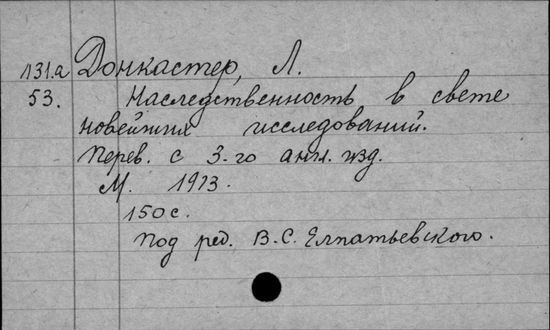 Л31.а Донкастер, Л.
53. Наследственность в свете
новейших исследований.
Перев. с 3-го англ. изд.
М. 1913.
150 с.
Под ред. В.С. Елпатьевского.